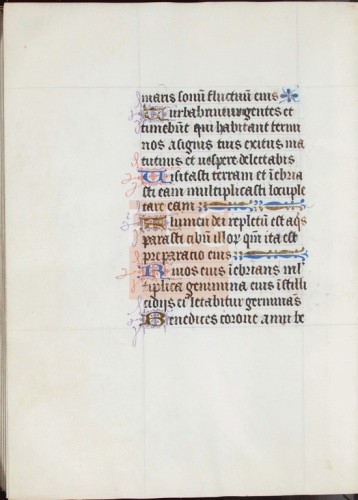 maris sonū fluctuū eius
Turbabuntur gentes et
timebūt qui habitant termi
nos a signis tuis exitus ma
tutini et vespere delectabis
Uisitasti terram et īebria
sti eam multiplicasti locuple
tare eam
Flumen dei repletū est aq̄s
parasti cibū illoꝝ qm̄ ita est
preparacio eius
Riuos eius īebrians ml̄
tiplica genimina eius ī stilli
cidijs eius letabitur germinās
Benedices corone anni be